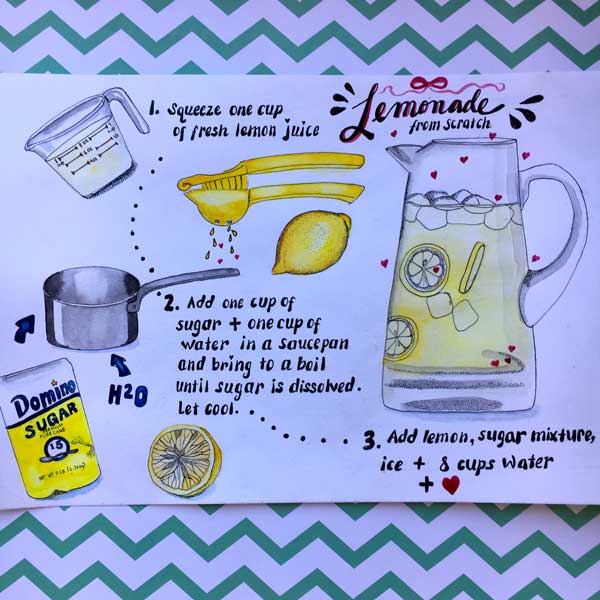 Lemonade
from scratch
1. Squeeze one cup
of fresh lemon juice
2. Add one cup of
sugar + one cup of
water in a saucepan
and bring to a boil
until sugar is dissolved.
Let cool.
H2O
Domino
SUGAR
PREMIUM
PURE CANE
3. Add lemon, sugar mixture,
ice + 8 cups water
+ ♥